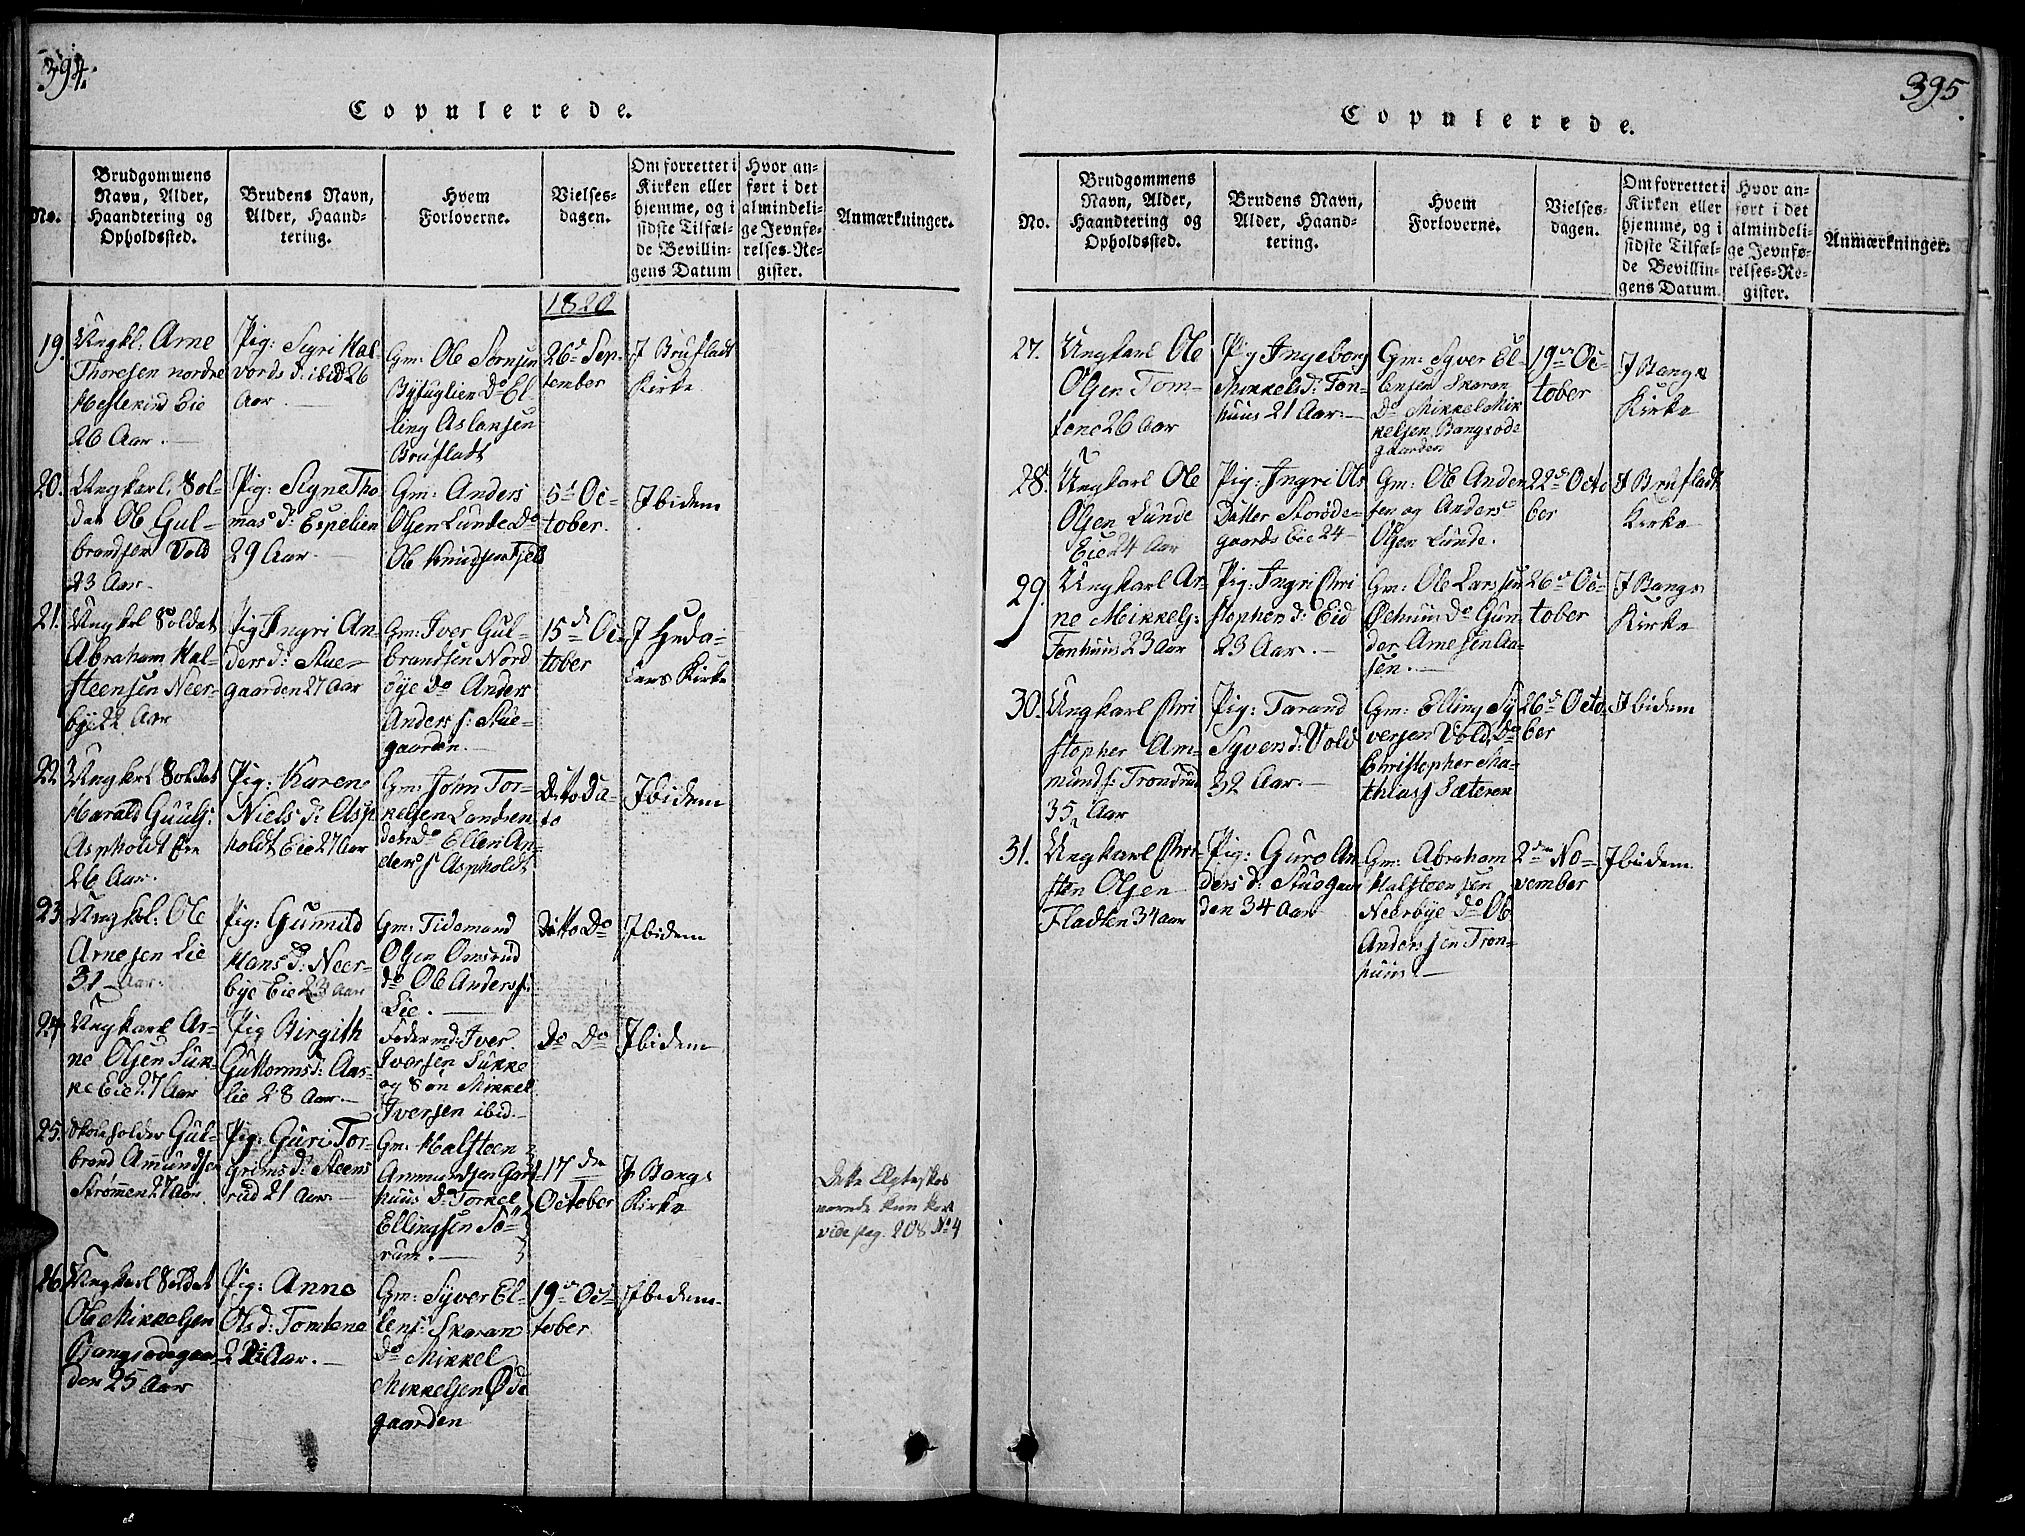 394.
Copulerede.
No.
Brudgommens
Navn, Alder,
Haandtering og
Opholdssted.
Brudens Navn,
Alder, Haand-
tering.
Hvem
Forloverne.
Vielses-
dagen.
Om forrettet i
Kirken eller
hjemme, og i
sidste Tilfæl-
de Bevillin-
gens Datum
Hvor an-
ført i det
almindeli-
ge Jevnfø-
relses-Re-
gister.
Anmærkninger.
1820
19.
Ungkl: Arne
Thoresen nordre
Hestekind Eie
26 Aar.
Pig: Sigri Hal-
vords d: ibid 26
Aar
Gm: Ole Sörnsen
Byfuglien Do El-
ling Aslansen
Brufladt
26d Sep-
tember
J Brufladt
Kirke
20.
Ungkarl Sol-
dat Ole Gul-
brandsen Vold
23 Aar.
Pig: Signe Tho
mas d: Espelien
29 Aar.
Gm: Anders
Olsen Lunde Do
Ole Knudsen Fjeld
5d Oc-
tober.
Ibidem
21.
Ungkrl Soldat
Abraham Hal-
steensen Neer-
bye 22 Aar
Pig Ingri An-
ders d: Stue-
gaarden 27 Aar
Gm: Iver Gul-
brandsen Nord
bye Do Anders
Anders s: Stue-
gaarden.
15de Oc-
tober
J Heda-
lens Kirke
22
Ungkrl Soldat
Harald Guuls:
Aspholdt Eie
26 Aar.
Pig: Karen
Niels d: Asp
holdt Eie 27 Aar
Gm: John Tor-
kelsen Landsen
den Do Ellen An-
ders s Aspholdt
Ditto Da-
to
Ibidem
23.
Ungkl: Ole
Arnesen Lie
31 Aar.
Pig: Gunnild
Hans d: Neer-
bye Eie 23 Aar
Gm: Tidemand
Olsen Omsrud
do Ole Anders s:
Lie.
Ditto Do
Ibidem
24
Ungkarl Ar-
ne Olsen Suk-
ke Eie 27 Aar
Pig Birgith
Guttorms d: Aas-
lie 28 Aar.
Federmd: Iver
Iversen Sukke
og Søn Mikkel
Iversen ibid.
Do Do
Ibidem
25.
Skoleholder Gul-
brand Amundsen
Strømen 27 Aar
Pig: Guri Tor-
grims d: Steens
rud 21 Aar.
Gm: Halsteen
Ammundsen Gart
huus Do Torkel
Ellingsen Sö-
rum.
17den
October
J Bangs
Kirke
Dette Egteskab
vide pag. 208 No 4
26.
Ungkarl Soldat
Ole Mikkelsen
Bangsødegaar-
den 25 Aar
Pig: Anne
Ols d: Tomtene
Aar.
Gm: Syver El-
lens: Skaran
Do Mikkel
Mikkelsen Øde
gaarden
19de Oc-
tober
Ibidem.
395.
Copulerede.
No.
Brudgommens
Navn, Alder,
Haandtering og
Opholdssted.
Brudens Navn,
Alder, Haand-
tering.
Hvem
Forloverne.
Vielses-
dagen.
Om forrettet i
Kirken eller
hjemme, og i
sidste Tilfæl-
de Bevillin-
gens Datum.
Hvor an-
ført i det
almindeli-
ge Jevnfø-
relses-Re-
gister.
Anmærkninger.
27.
Ungkarl Ole
Olsen Tom-
tene 26 Aar
Pig Ingeborg
Mikkels d: Ton-
huus 21 Aar.
Gm: Syver El-
lensen Skaran
Do Mikkel Mik
kelsen Bangsøde
gaarden
19de Oc-
tober
J Bangs
Kirke
28.
Ungkarl Ole
Olsen Lunde
Eie 24 Aar
Pig: Ingri Ols
Datter Storøde-
gaards Eie 24
Gm: Ole Ander
sen og Anders
Olsen Lunde.
22de Octo
ber
J Brufladt
Kirke
29.
Ungkarl Ar-
ne Mikkels:
Tonhuus 23 Aar
Pig: Ingri Chri
stopher d: Eid
23 Aar.
Gm: Ole Larssen
Ødhuus Do Gun-
der Arnesen Aa-
sen.
26de Oc-
tober
J Bangs
Kirke
30.
Ungkarl Chri
stopher Am-
mund s: Trondrud
35 Aar
Pig: Tarand
Syvers d: Vold
32 Aar.
Gm: Elling Sy
versen Vold Do
Christopher Ma-
thias s Sæteren
26de Octo-
ber
Ibidem
31.
Ungkarl Chri-
sten Olsen
Fladten 34 Aar
Pig: Guro An-
ders d: Stuegaar
den 34 Aar
Gm: Abraham
Halsteensen
Neerbye do Ole
Anderssen Tron-
huus.
2den No-
vember
Ibidem